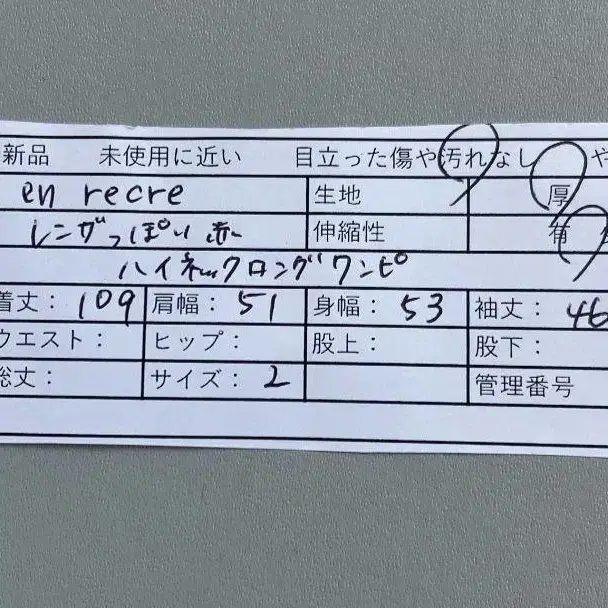 新品 未使用に近い 目立った傷や汚れなし や
en recre 生地 厚
レンガっぽい赤 伸縮性 有
ハイネックロングワンピ
着丈：109 肩幅：51 身幅：53 袖丈：46
ウエスト： ヒップ： 股上： 股下：
総丈： サイズ：2 管理番号